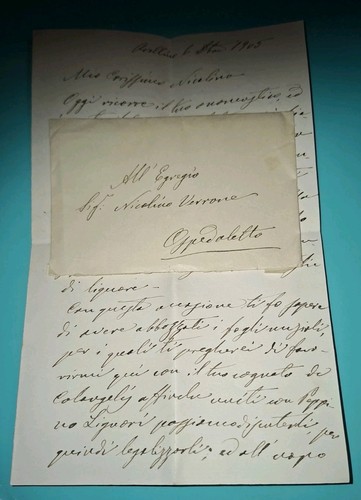 Mio Carissimo Nicolino
Oggi ricorre il tuo onomastico, ed
All' Egregio
Sig. Nicolino Verrone
Ospedaletto
di liquore -
Con questa occasione ti fo sapere
di avere abbozzati i fogli nuziali,
per i quali ti pregherei di favo-
rirmi qui con il tuo cognato de
Colangelis affinché uniti con Peppi-
no Liguori possiamo discuterli, per
quindi legalizzarli; ed all' uopo